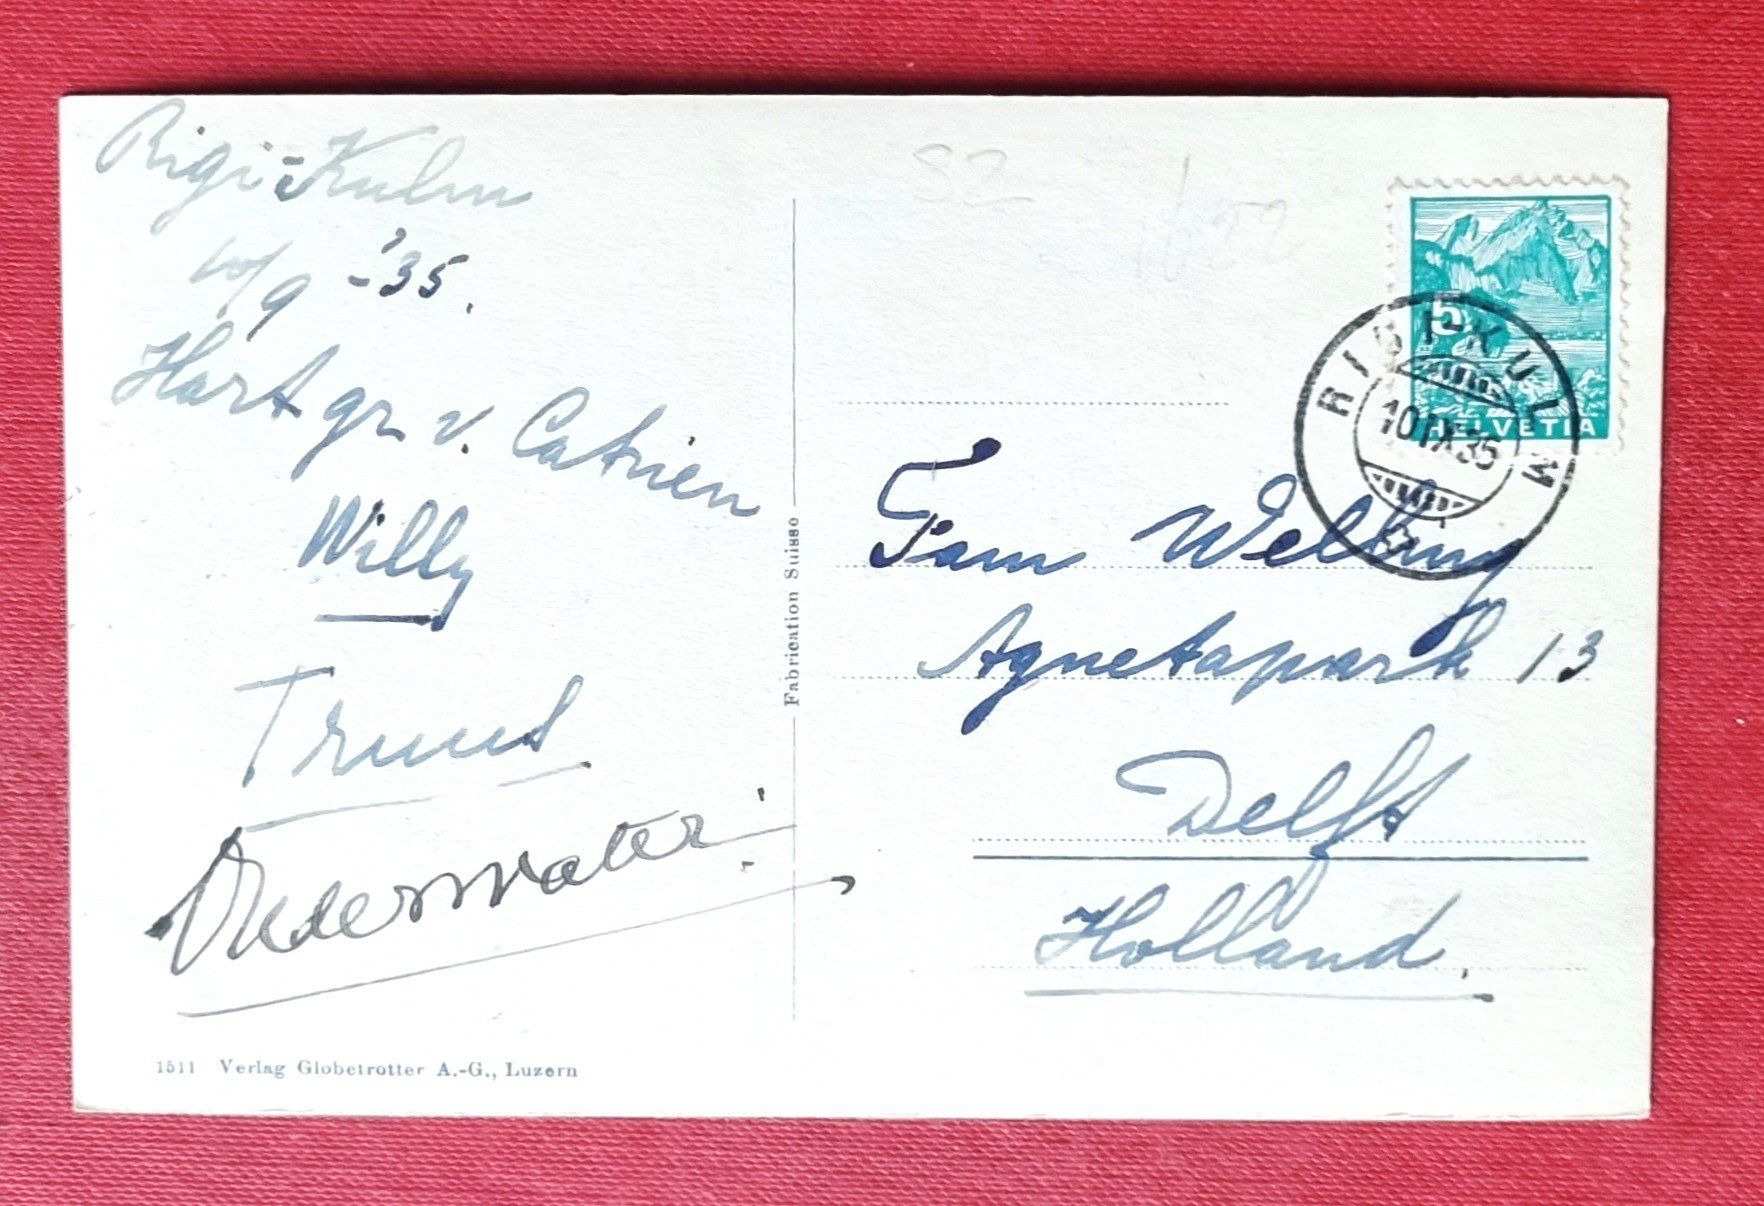 Rigi-Kulm
10/9 -'35.
Hart gr v. Catrien
Willy
Truus
Onderwater
1511 Verlag Globetrotter A.-G., Luzern
Fabrication Suisse
5
HELVETIA
RIGI-KULM
10 IX 35
Fam Welling
Agnetapark 13
Delft
Holland.